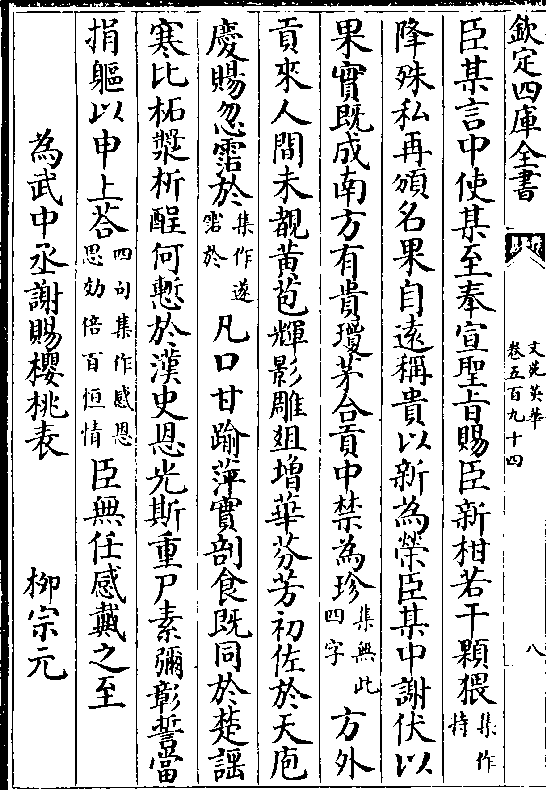 欽定四庫全書
文苑英華
卷五百九十四
八
臣某言中使某至奉宣聖旨賜臣新柑若干顆猥集作特
降殊私再頒名果自遠稱貴以新為榮臣某中謝伏以
果實既成南方有貴瓊茅合貢中禁為珍集無此四字方外
貢來人間未覩黃苞輝影雕俎增華芬芳初佐於天庖
慶賜忽霑於集作遂霑於凡口甘踰萍實剖食既同於楚謡
寒比柘漿析酲何慙於漢史恩光斯重尸素彌彰誓當
捐軀以申上荅四句集作感恩思効倍百恒情臣無任感戴之至
為武中丞謝賜櫻桃表　柳宗元